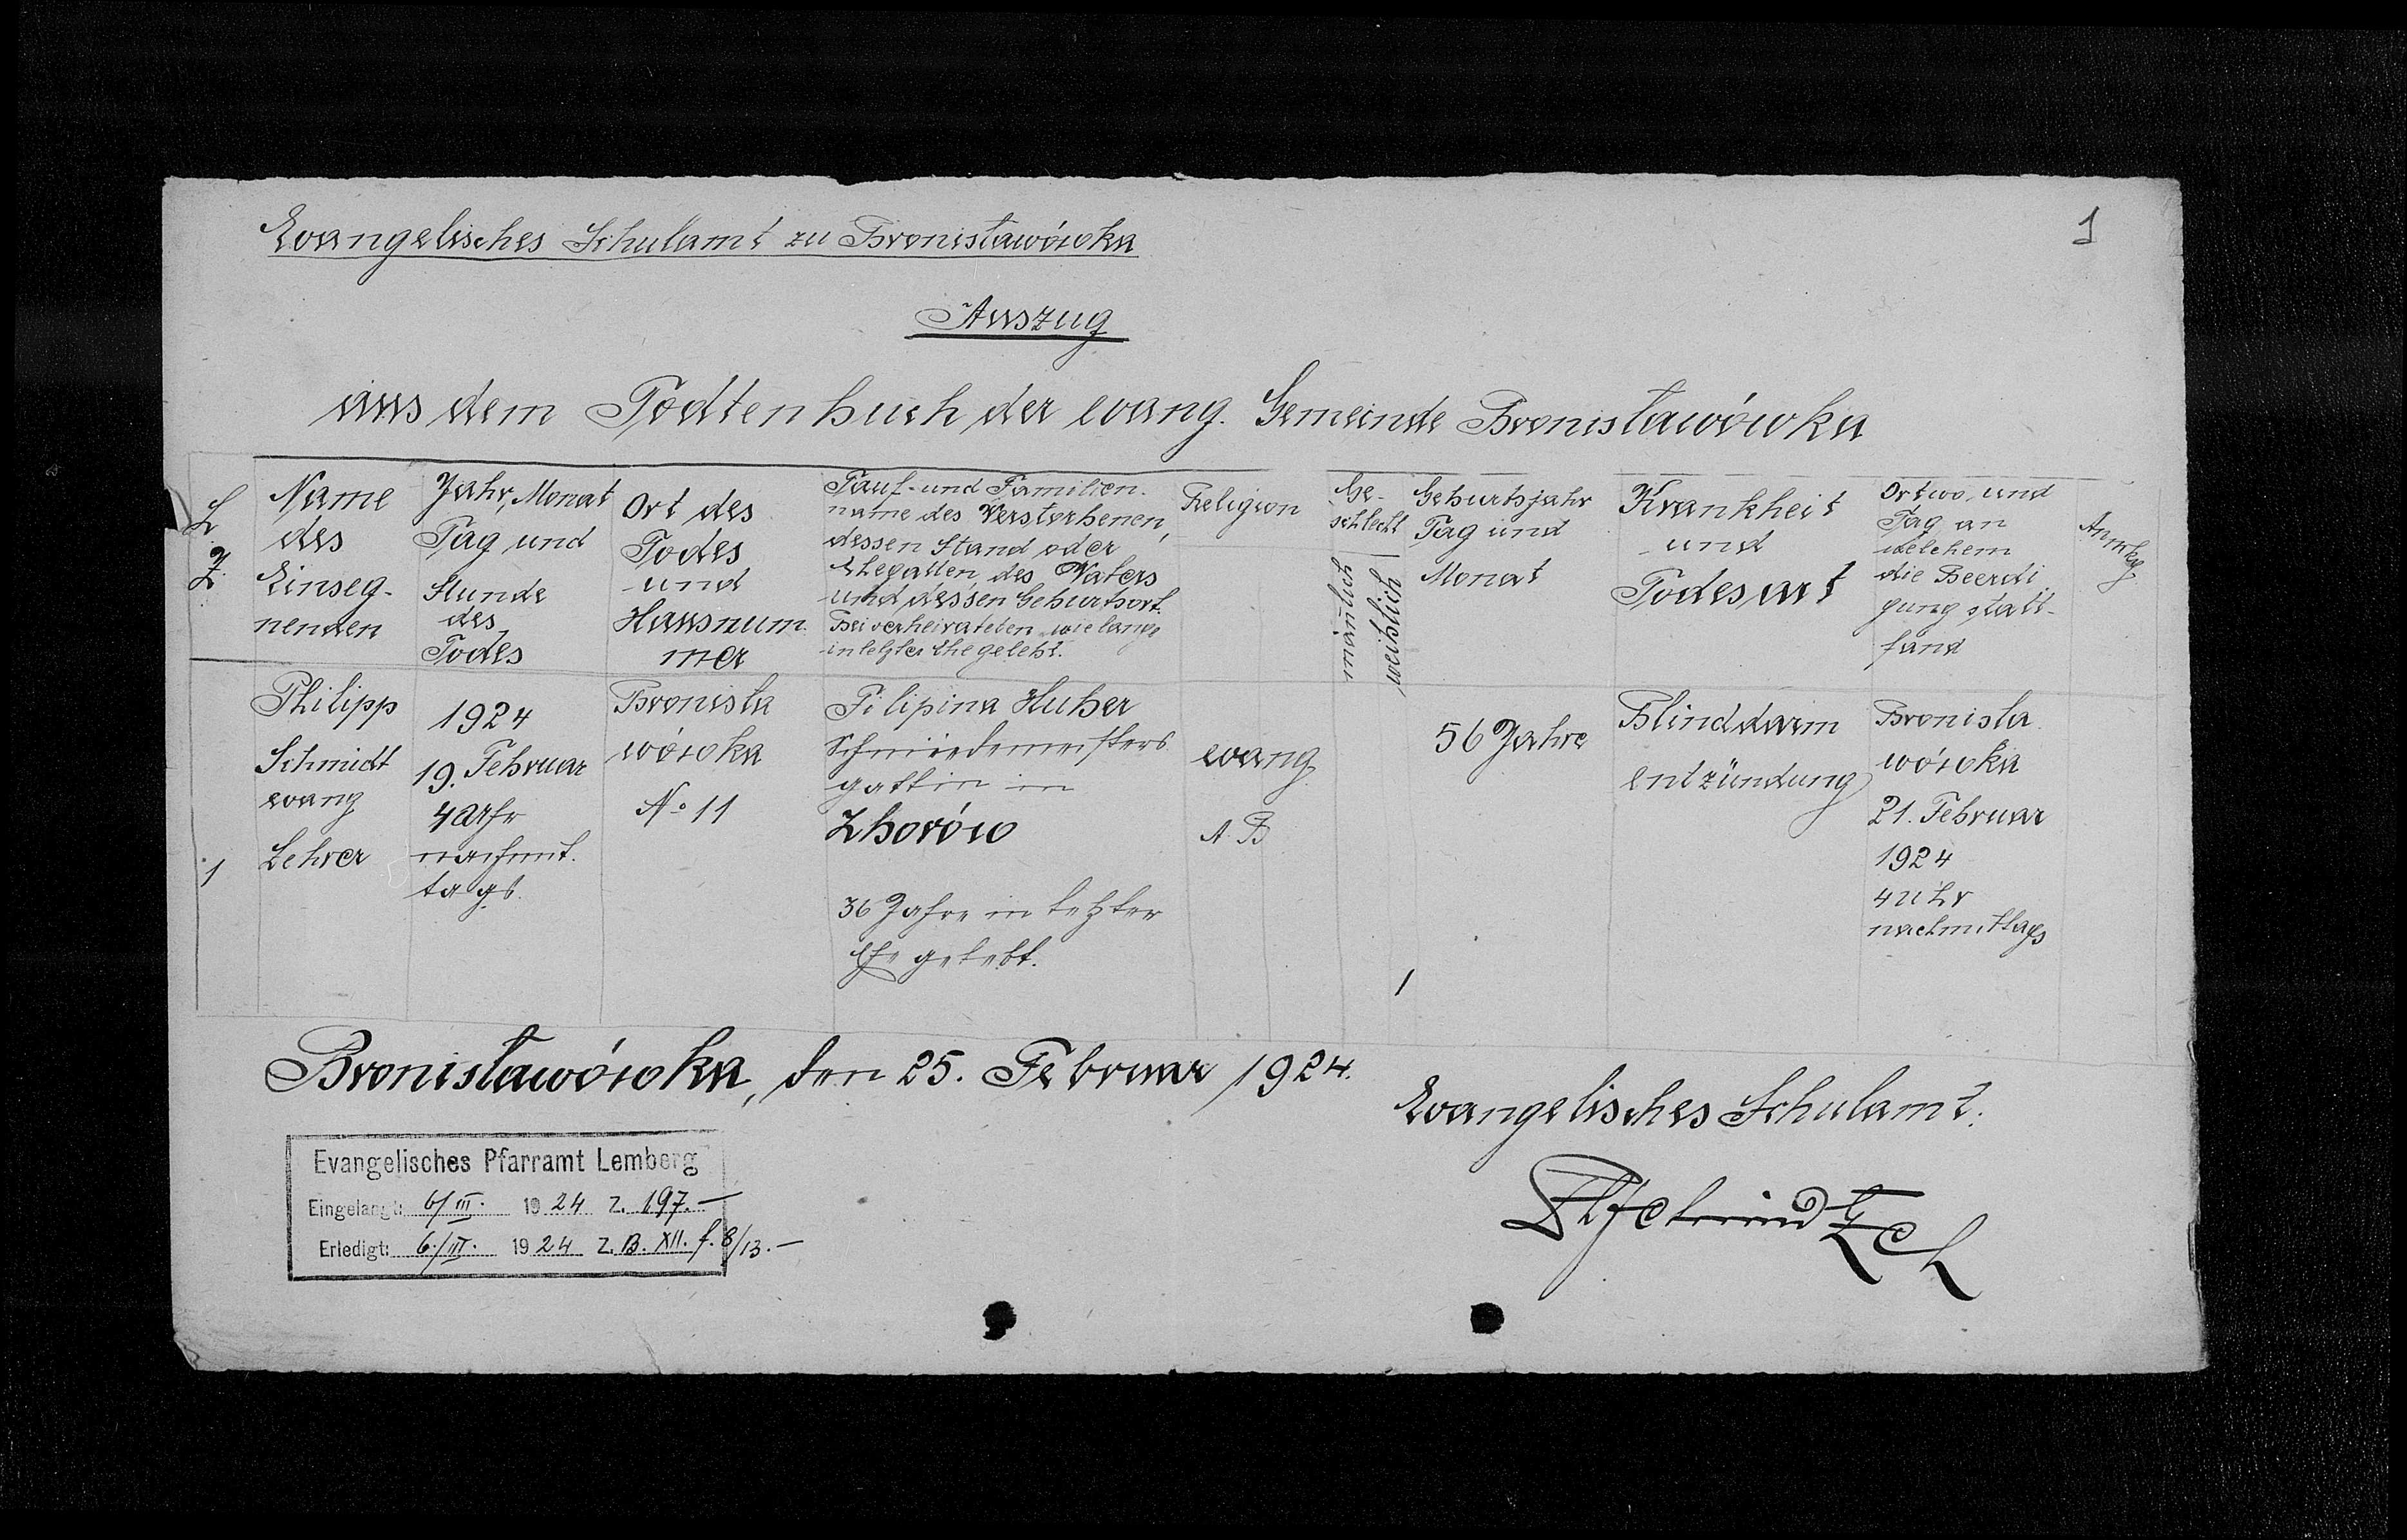 Evangelisches Schulamt zu Bronisławówka
1
Auszug
aus dem Todtenbuch der evang. Gemeinde Bronisławówka
L.
Z.
Name
des
Einseg-
nenden
Jahr, Monat
Tag und
Stunde
des
Todes
Ort des
Todes
und
Hausnum
mer
Tauf- und Familien-
name des Verstorbenen,
dessen Stand oder
Ehegatten, des Vaters
und dessen Geburtsort.
Bei verheirateten wie lange
in letzter Ehe gelebt.
Religion
Ge-
schlecht
männlich
weiblich
Geburtsjahr
Tag und
Monat
Krankheit
und
Todesart
Ort wo, und
Tag an
welchem
die Beerdi
gung statt-
fand
Anmkg
1
Philipp
Schmidt
evang
Lehrer
1924
19. Februar
4 Uhr
nachmit.
tags.
Bronisła
wówka
No 11
Filipina Huber
Schmiedemeisters
gattin in
Zborów
36 Jahre in letzter
Ehe gelebt.
evang.
A. B
1
56 Jahre
Blinddarm
entzündung
Bronisła
wówka
21. Februar
1924
4 Uhr
nachmittags
Bronisławówka, den 25. Februar 1924.
Evangelisches Schulamt.
Evangelisches Pfarramt Lemberg
Eingelangt: 6/III. 1924 Z. 197.-
Erledigt: 6./III. 1924 Z. B. XII. f. 8/13.-